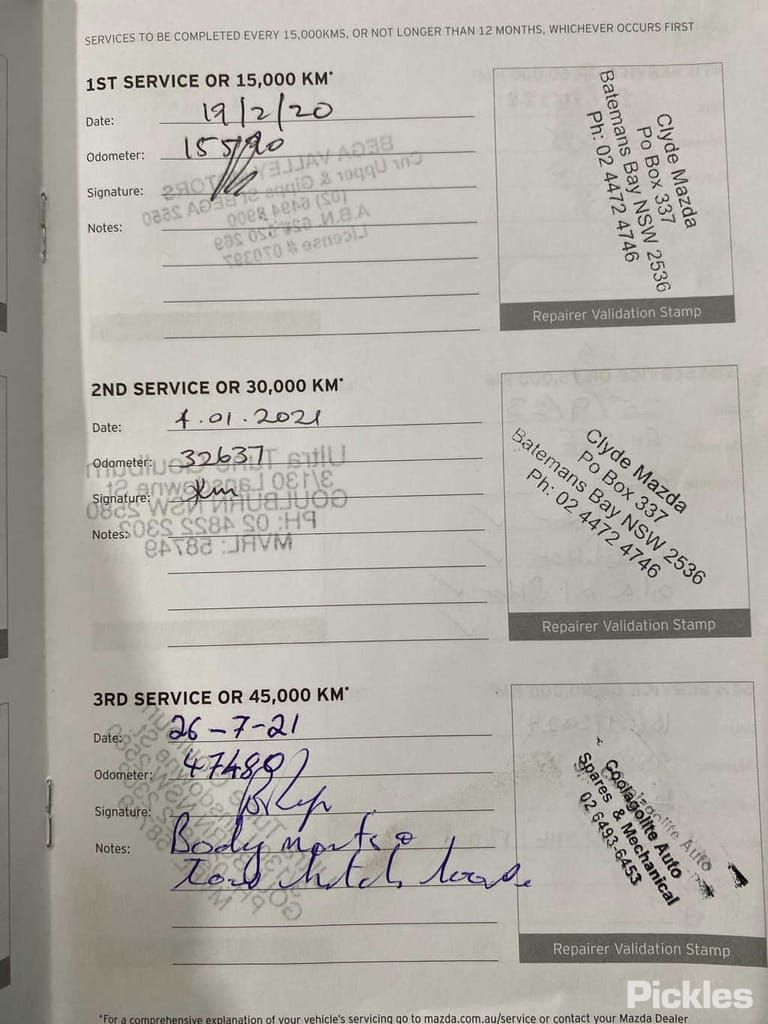 SERVICES TO BE COMPLETED EVERY 15,000KMS, OR NOT LONGER THAN 12 MONTHS, WHICHEVER OCCURS FIRST
1ST SERVICE OR 15,000 KM*
Date: 19/2/20
Odometer:
Signature:
Notes:
Clyde Mazda
Po Box 337
Batemans Bay NSW 2536
Ph: 02 4472 4746
Repairer Validation Stamp
2ND SERVICE OR 30,000 KM*
Date: 7.01.2021
Odometer: 32637
Signature:
Notes:
Clyde Mazda
Po Box 337
Batemans Bay NSW 2536
Ph: 02 4472 4746
Repairer Validation Stamp
3RD SERVICE OR 45,000 KM*
Date: 26-7-21
Odometer: 47480
Signature:
Notes: Body mounts
Tow hitch loose
Coolagolite Auto
Spares & Mechanical
02 6493-6453
Repairer Validation Stamp
*For a comprehensive explanation of your vehicle's servicing go to mazda.com.au/service or contact your Mazda Dealer
Pickles